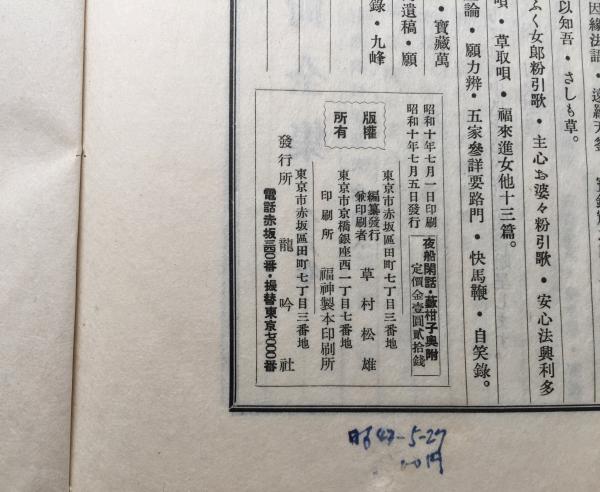 因緣法語・遠羅天釜・
以知吾・さしも草。
ふく女郎粉引歌・主心お婆々粉引歌・安心法興利多
唄・草取唄・福來進女他十三篇。
論・願力辨・五家參詳要路門・快馬鞭・自笑錄。
寶藏萬
遺稿・願
錄・九峰
夜船閑話・藪柑子奧附
定價金壹圓貳拾錢
昭和十年七月一日印刷
昭和十年七月五日發行
版權
所有
東京市赤坂區田町七丁目三番地
編纂發行
兼印刷者 草村松雄
東京市京橋銀座西一丁目七番地
印刷所 福神製本印刷所
東京市赤坂區田町七丁目三番地
發行所 龍吟社
電話赤坂三四〇番・振替東京七〇〇〇番
昭47-5-27